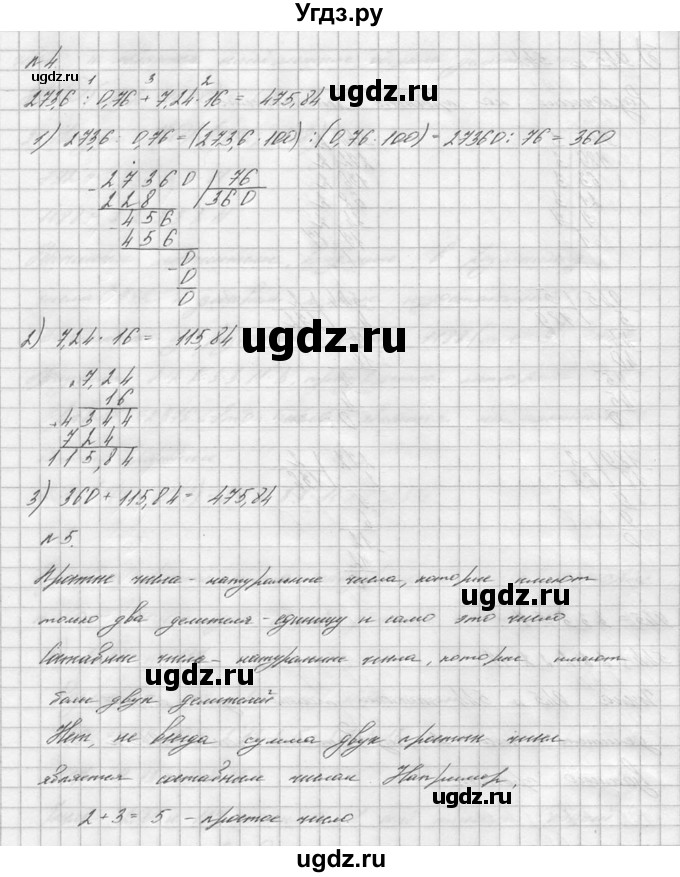 Угдз.ру
№ 4
ugdz.ru
1 3 2
273,6 : 0,76 + 7,24 · 16 = 475,84
ugdz.ru
1) 273,6 : 0,76 = (273,6 · 100) : (0,76 · 100) = 27360 : 76 = 360
- 27360 | 76
228 360
- 456
456
- 0
0
0
2) 7,24 · 16 = 115,84
ugdz.ru
× 7,24
16
+ 4344
724
115,84
3) 360 + 115,84 = 475,84
ugdz.ru
№ 5.
Простые числа - натуральные числа, которые имеют
ugdz.ru
только два делителя - единицу и само это число
Составные числа - натуральные числа, которые имеют
ugdz.ru
более двух делителей
Нет, не всегда сумма двух простых чисел
является составным числом. Например,
ugdz.ru
2 + 3 = 5 - простое число
ugdz.ru